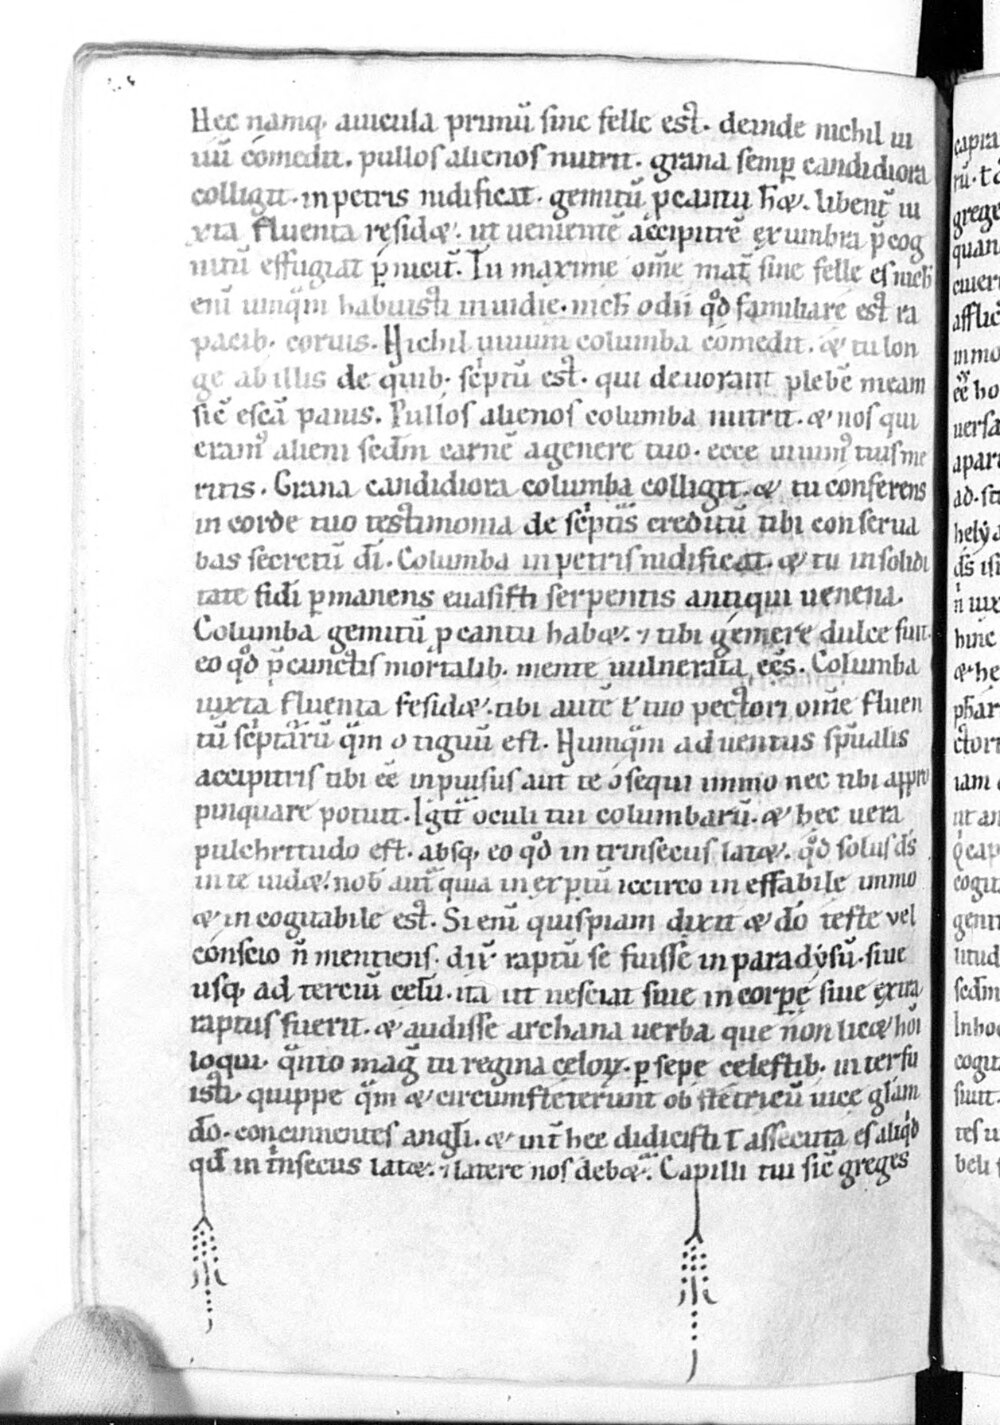 Hec namq; auicula primũ sine felle est. deinde nichil ui
uũ comedit. pullos alienos nutrit. grana semp candidiora
colligit. in petris nidificat. gemitũ p cantu h̃&. libent̃ iu
xta fluenta resid&. ut uenientẽ accipitrẽ ex umbra p̃cog
nitũ effugiat p̃nicit̃. Tu maxime om̃e mat̃ sine felle es nich̃
enĩ unq̃m habuisti inuidie. nich̃ odii q̊d familiare est ra
pacib; coruis. Nichil uiuum columba comedit. & tu lon
ge ab illis de quib; sc̃ptũ est. qui deuorant plebẽ meam
sic̃ escã panis. Pullos alienos columba nutrit. & nos qui
eram᷒ alieni sed̃m carnẽ a genere tuo. ecce uiuim᷒ tuis me
ritis. Grana candidiora columba colligit. & tu conferens
in corde tuo testimonia de sc̃ptis creditũ tibi conserua
bas secretũ dĩ. Columba in petris nidificat. & tu in solidi
tate fidi p manens euasisti serpentis antiqui uenena.
Columba gemitũ p cantu hab&. ⁊ tibi gemere dulce fuit.
eo q̊d p̃ cunctis mortalib; mente uulnerata ees. Columba
iuxta fluenta resid&. tibi autẽ ĩ tuo pectori om̃e fluen
tũ sc̃pta͛rũ q̃m o tiguũ est. Nunq̃m aduentus sp̃ualis
accipitris tibi eẽ inpuisus aut te osequi immo nec tibi appro
pinquare potuit. Igit̃ oculi tui columbarũ. & hec uera
pulchritudo est. absq; eo q̊d intrinsecus lat&. q̊d solus d̃s
in te uid&. nob̃ aut̃ quia inexp̃tũ iccirco ineffabile immo
& incogitabile est. Si enĩ quispiam dixit & d̃o teste vel
conscio ñ mentiens. dũ raptũ se fuisse in paradysũ. siue
usq; ad terciũ celũ. ita ut nesciat siue in corpe siue extra
raptus fuerit. & audisse archana uerba que ñon lic& hõi
loqui. q̃nto mag̃ tu regina celoꝝ. p sepe celestib; interfu
isti. quippe q̃m & circumsteterunt obstetricũ uice gl̃am
d̃o. concinnentes angl̃i. & int̃ hec didicisti ĩ assecuta es aliq̊d
qd̃ intrĩnsecus lat&. ⁊ latere nos deb&. Capilli tui sic̃ greges